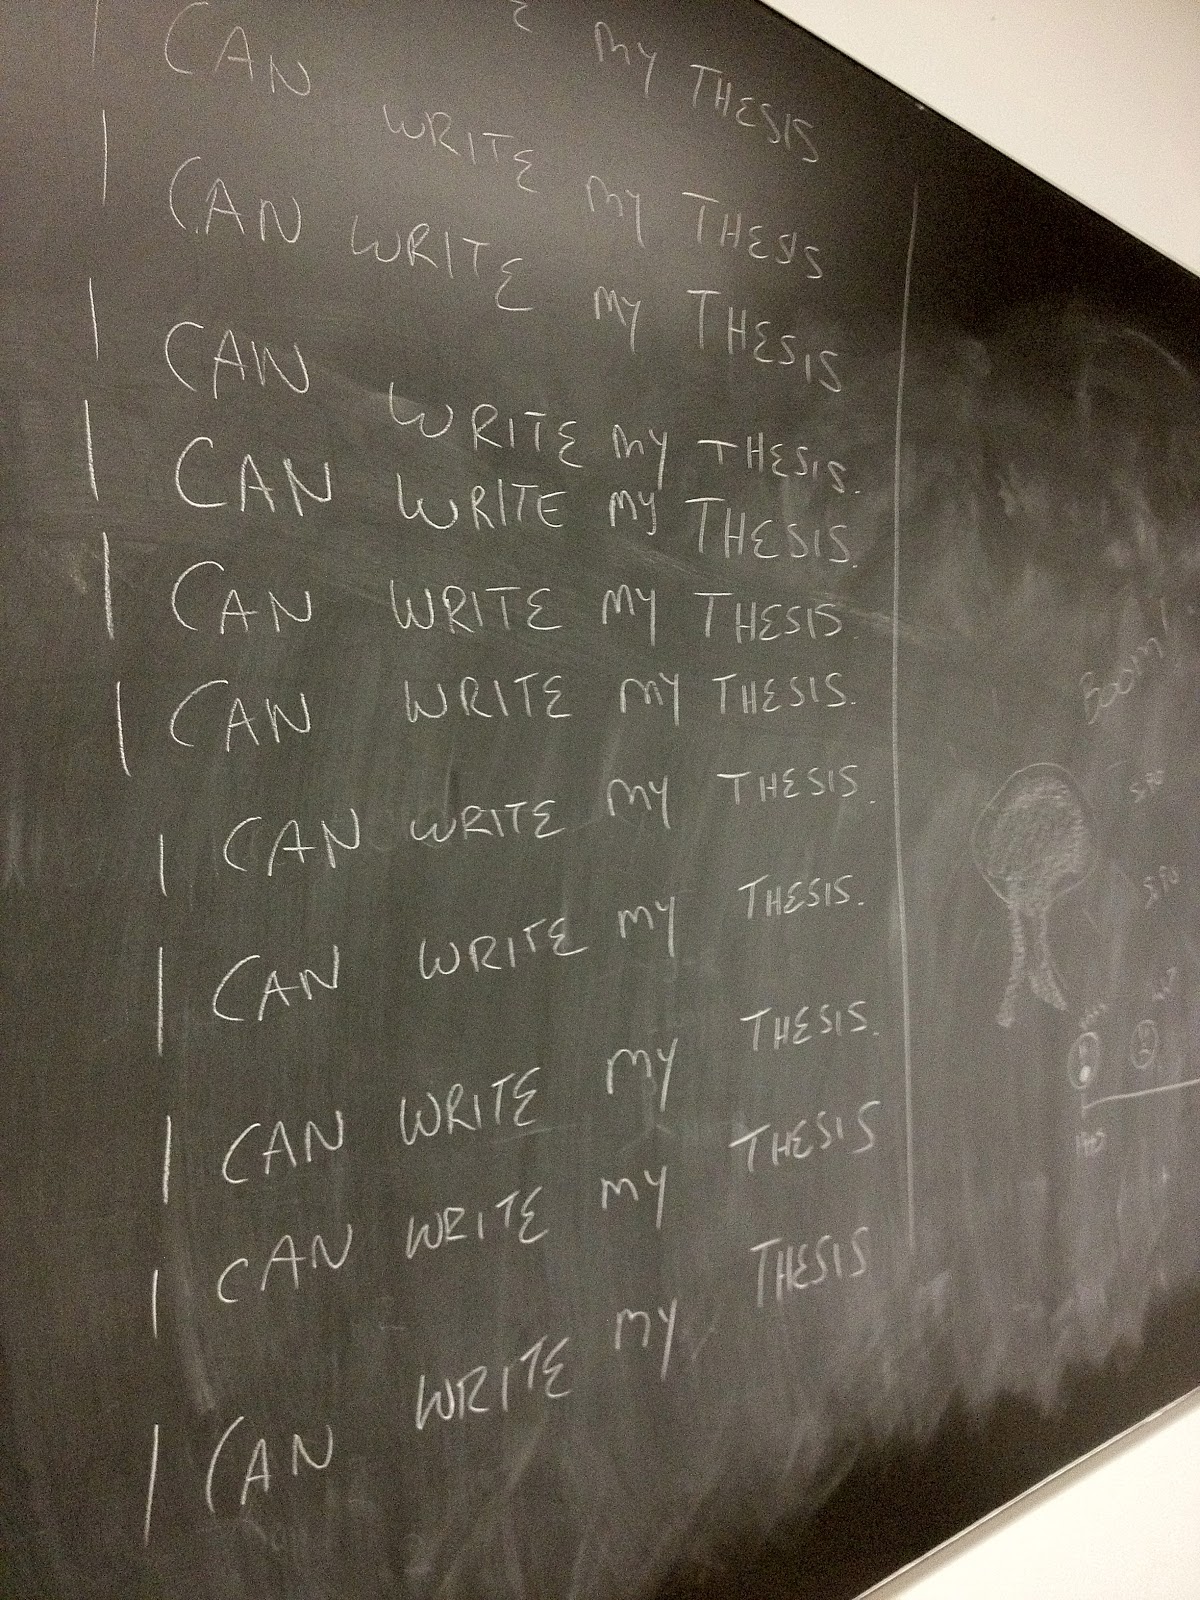 MY THESIS
I CAN WRITE MY THESIS
I CAN WRITE MY THESIS
I CAN WRITE MY THESIS.
I CAN WRITE MY THESIS.
I CAN WRITE MY THESIS.
I CAN WRITE MY THESIS.
I CAN WRITE MY THESIS.
I CAN WRITE MY THESIS.
I CAN WRITE MY THESIS.
I CAN WRITE MY THESIS
I CAN WRITE MY THESIS
BOOM!